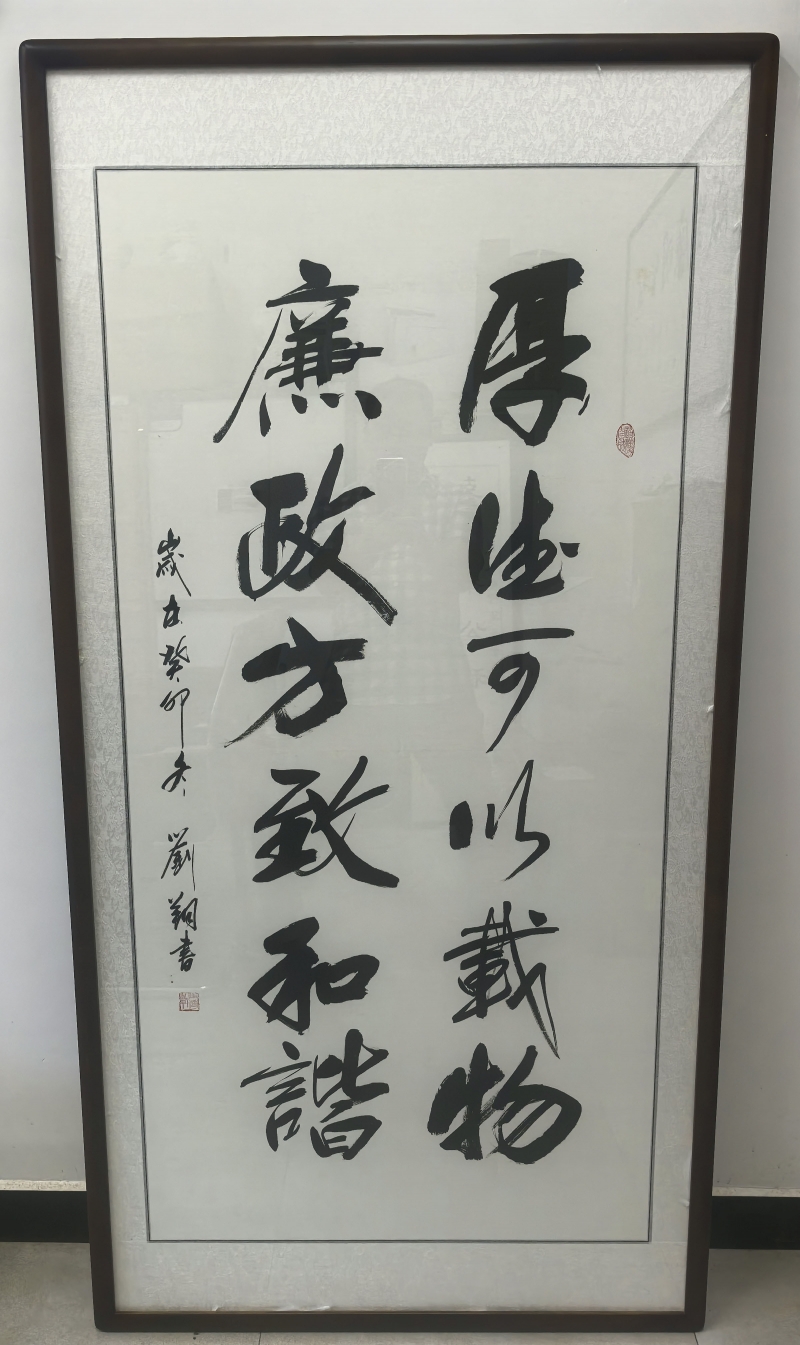 厚德可以載物
廉政方致和諧
歲在癸卯冬 劉翔書